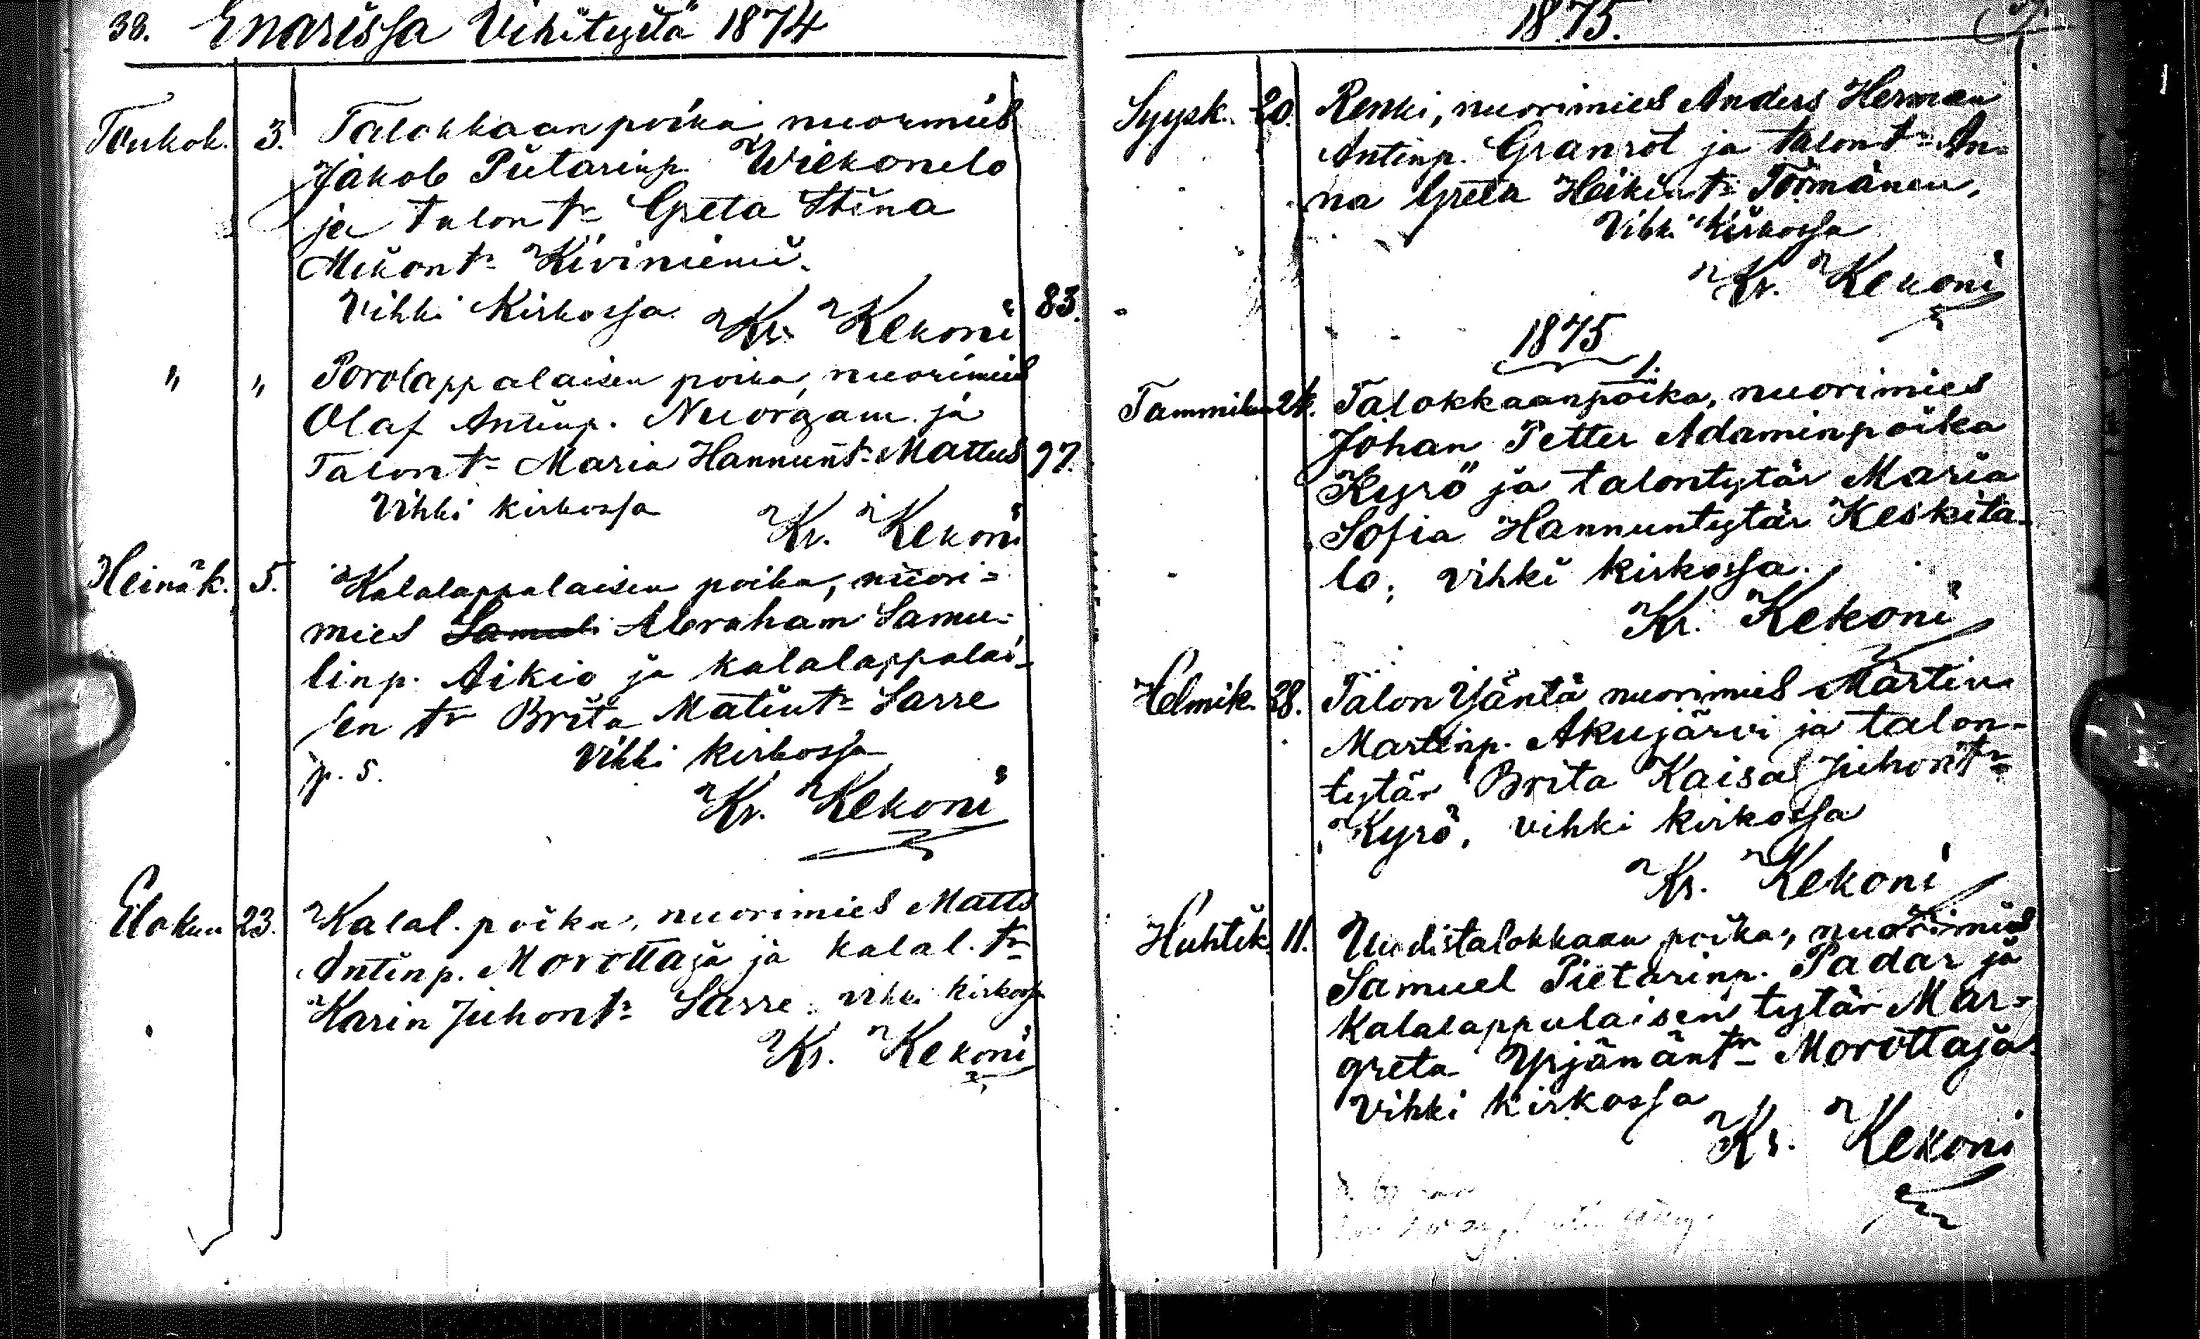 38. Enarissa Vihityitä 1874
Toukok. 3. Talokkaanpoika nuormiis
Jakob Pietarinp. Wiekonelo
ja talont:r Greta Stina
Mikont:r Kiviniemi.
Vihki Kirkossa. Kr. Kekoni 83.
" " Porolappalaisen poika, nuorimies
Olaf Antinp. Nuorgam ja
Talont:r Maria Hannunt:r Mattus 97.
Vihki kirkossa Kr. Kekoni
Heinäk. 5. Kalalappalaisen poika, nuori=
mies Samuli Abraham Samu-
linp. Aikio ja kalalappalai-
sen tr Brita Matint:r Sarre
p. 5. Vihki kirkossa
Kr. Kekoni
Elokuu 23. Kalal. poika, nuorimies Matts
Antinp. Morottaja ja kalal. tr
Karin Juhont:r Sarre. vihki kirkossa
Kr. Kekoni
1875.
Syysk. 20. Renki, nuorimies Anders Herman
Antinp. Granrot ja talont:r An-
na Greta Heikint:r Törmänen,
Vihki Kirkossa
Kr. Kekoni
1875
Tammikuu 24. Talokkaanpoika, nuorimies
Johan Petter Adaminpoika
Kyrö ja talontytär Maria
Sofia Hannuntytär Keskita-
lo; vihki kirkossa.
Kr. Kekoni
Helmik. 28. Talon Isäntä nuorimies Martin
Martinp. Akujärvi ja talon-
tytär Brita Kaisa Juhont:r
Kyrö, vihki kirkossa
Kr. Kekoni
Huhtik. 11. Uudistalokkaan poika, nuorimies
Samuel Pietarinp. Padar ja
Kalalappalaisen tytär Mar-
greta Yrjänänt:r Morottaja.
Vihki kirkossa
Kr. Kekoni